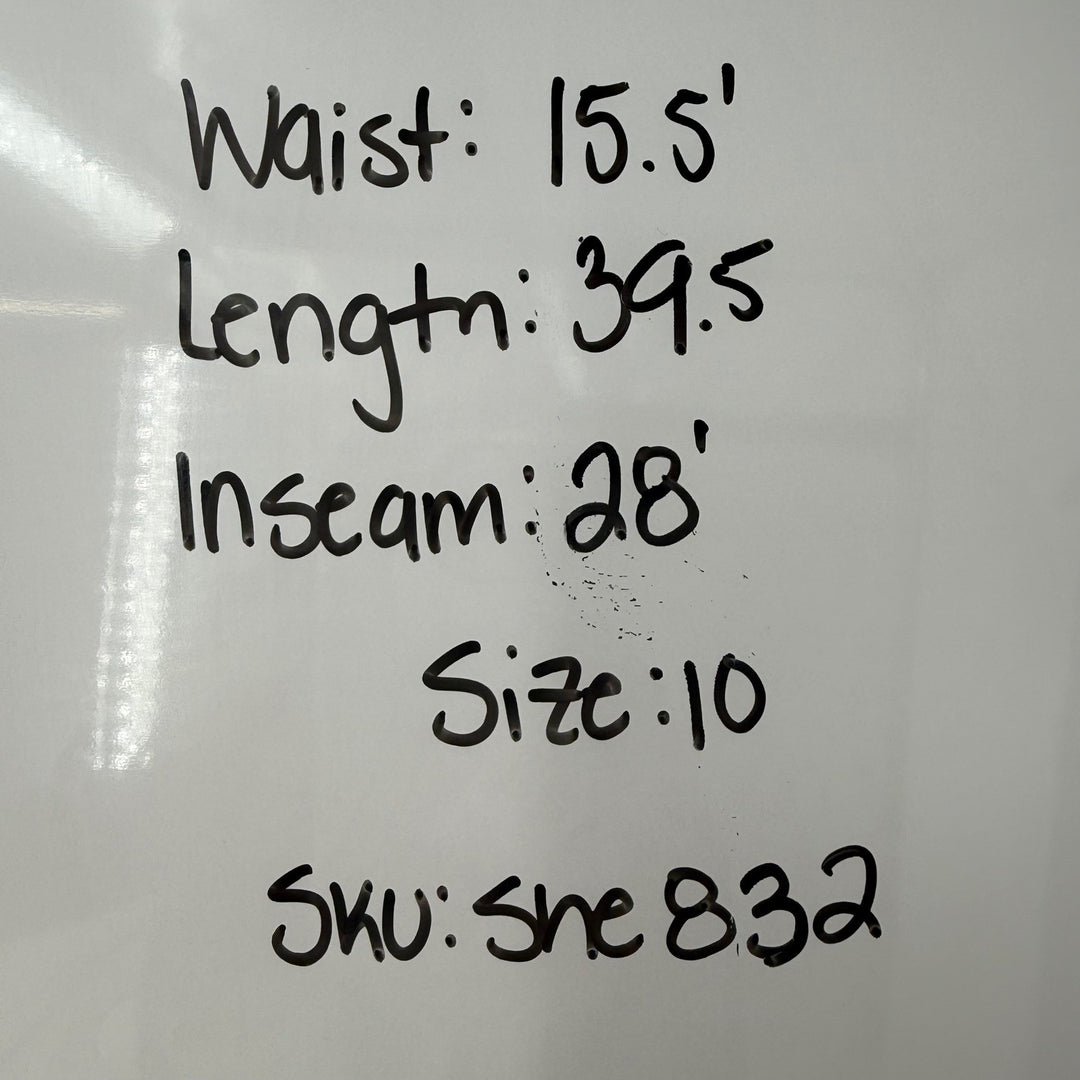 Waist: 15.5'
Length: 39.5
Inseam: 28'
Size: 10
SKU: She 832